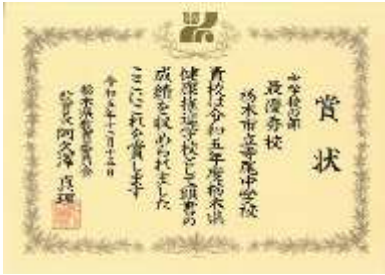 賞状
中学校の部
最優秀校
栃木市立寺尾中学校
貴校は令和五年度栃木県
健康推進学校として頭書の
成績を収められました
ここにこれを賞します
令和五年十二月十二日
栃木県教育委員会
教育長 阿久澤 真理